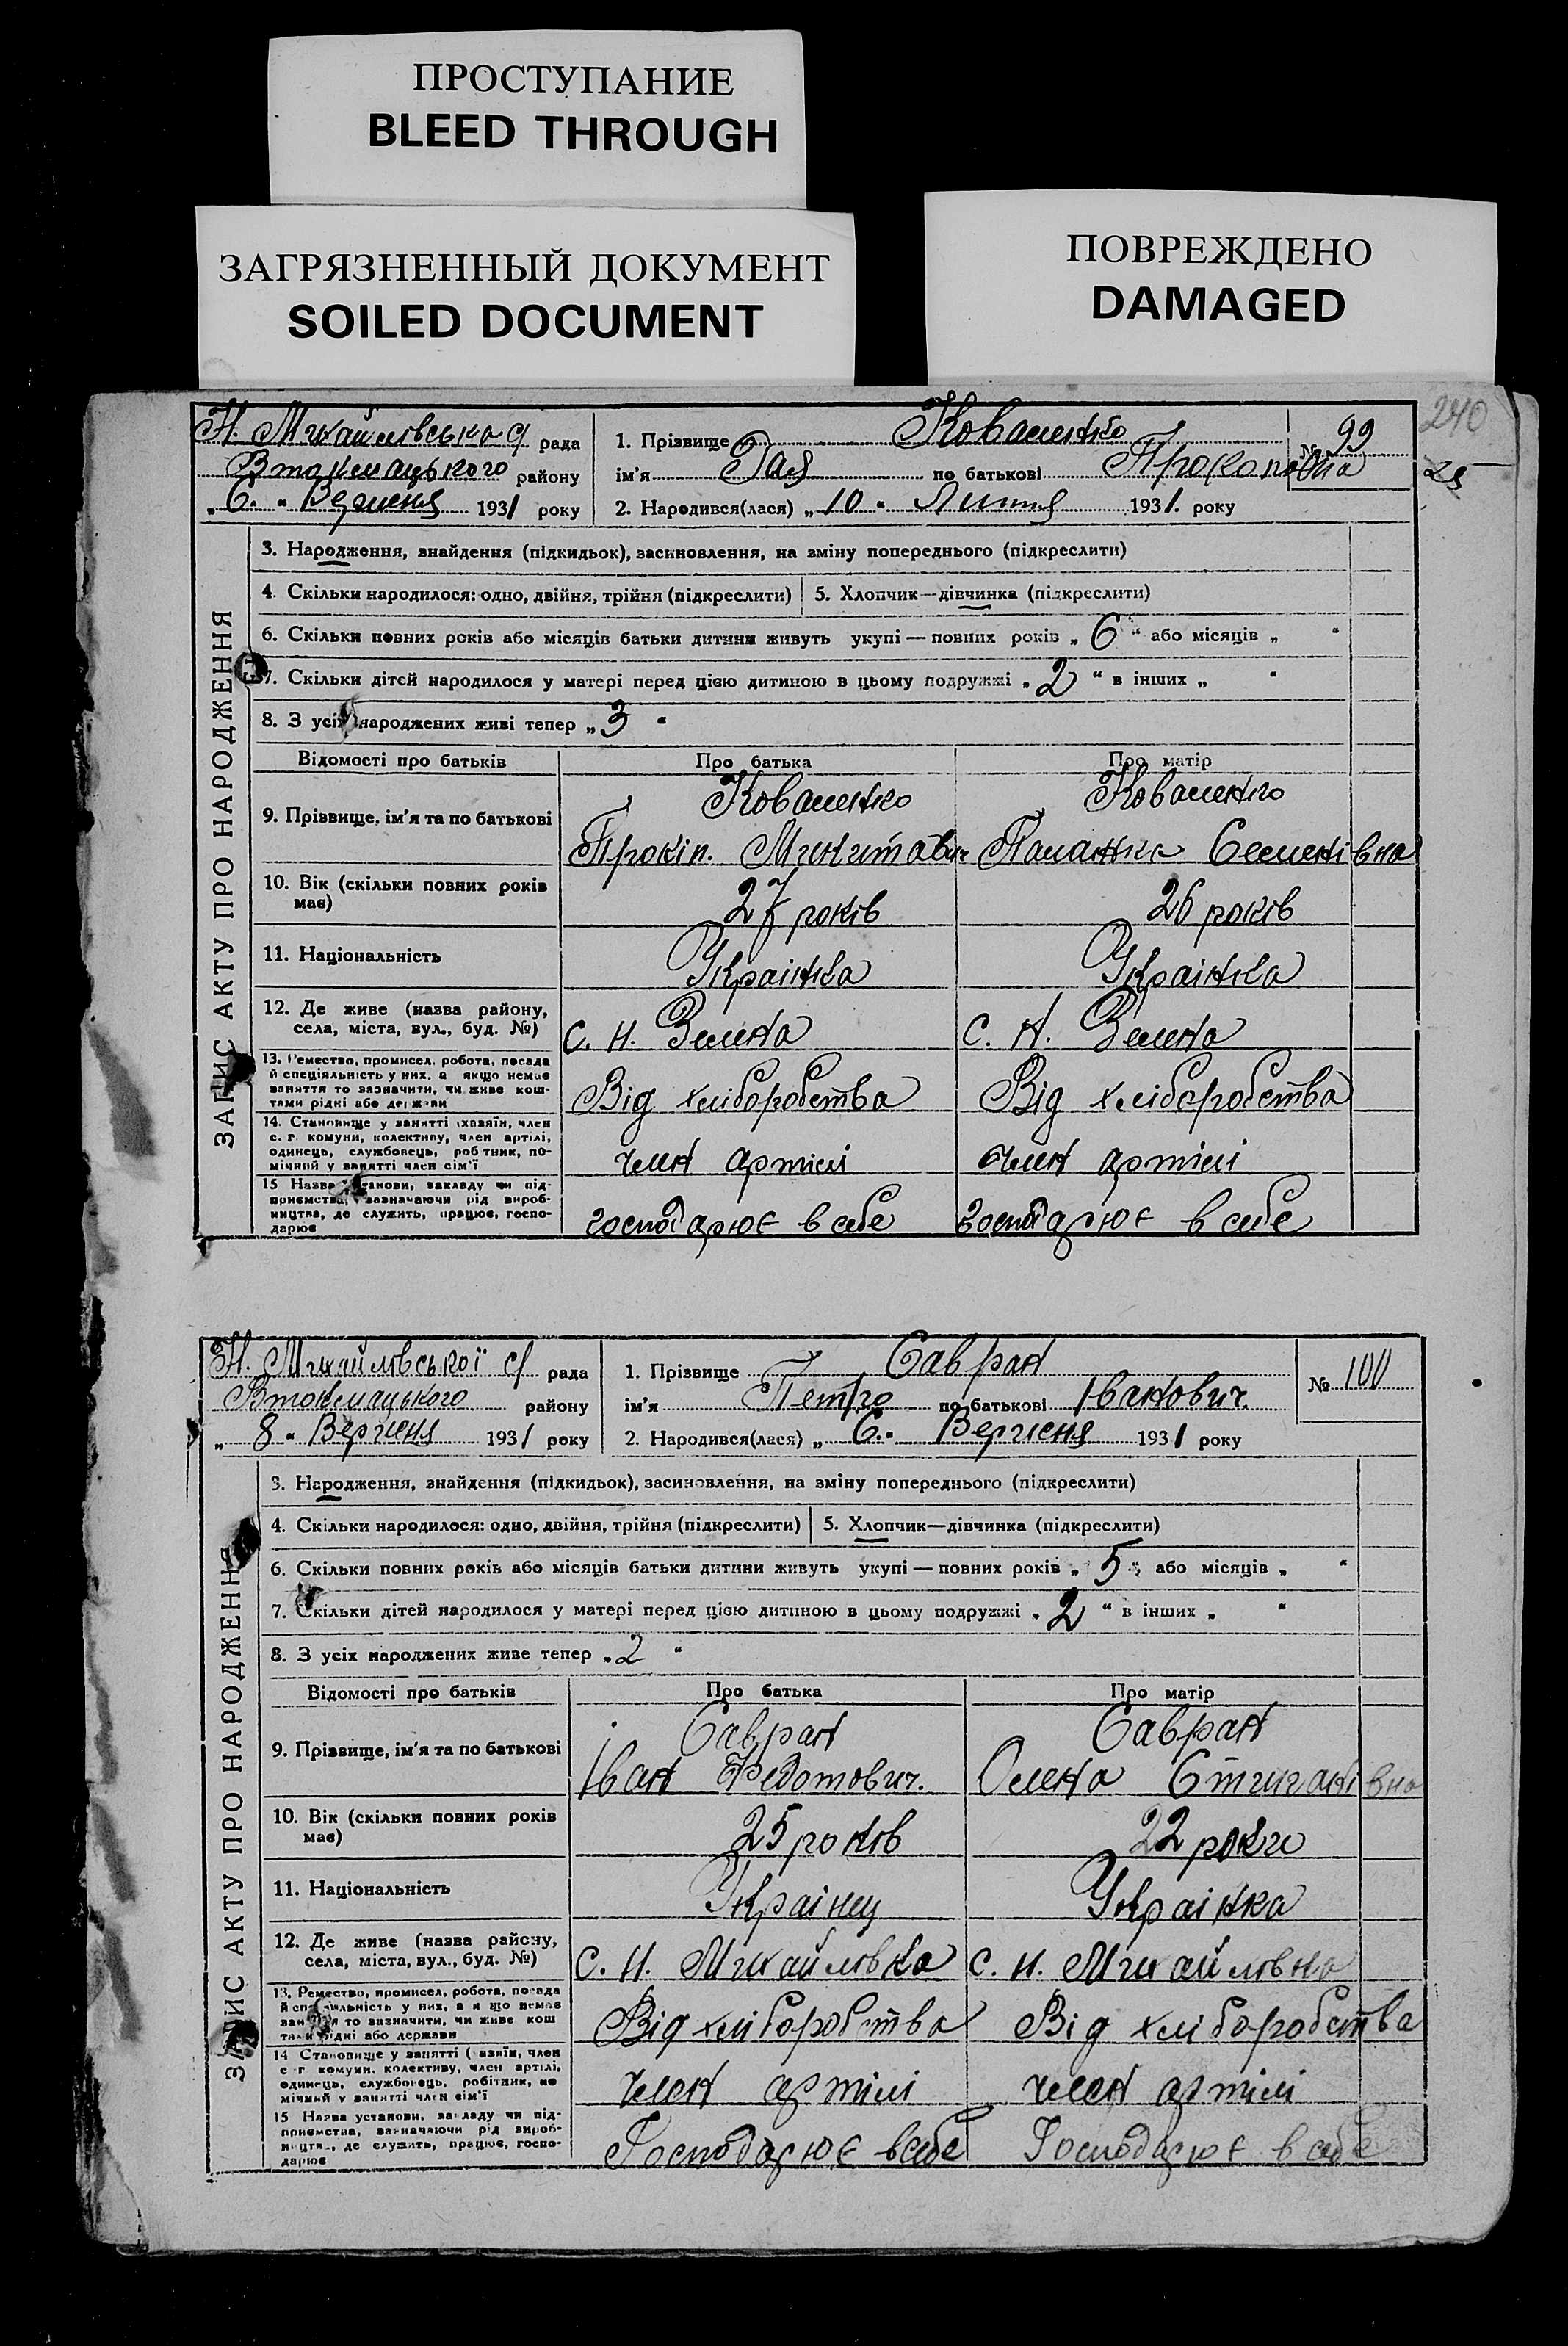 ПРОСТУПАНИЕ
BLEED THROUGH
ЗАГРЯЗНЕННЫЙ ДОКУМЕНТ
SOILED DOCUMENT
ПОВРЕЖДЕНО
DAMAGED
240
25
Н. Михайлівська с/ рада
Втокмацького району
„ 6. " Вересня 1931 року
1. Прізвище Коваленко
№ 99
ім'я Гая по батькові Прокоповна
2. Народився(лася) „ 10 " Липня 1931. року
ЗАПИС АКТУ ПРО НАРОДЖЕННЯ
3. Народження, знайдення (підкидьок), засиновлення, на зміну попереднього (підкреслити)
4. Скільки народилося: одно, двійня, трійня (підкреслити) 5. Хлопчик—дівчинка (підкреслити)
6. Скільки повних років або місяців батьки дитини живуть укупі — повних років „ 6 " або місяців „ "
7. Скільки дітей народилося у матері перед цією дитиною в цьому подружжі „ 2 " в інших „ "
8. З усіх народжених живі тепер „ 3 "
Відомості про батьків Про батька Про матір
9. Прізвище, ім'я та по батькові
Коваленко Коваленко
Прокіп. Микитович Паланка Семенівна
10. Вік (скільки повних років має) 27 років 26 років
11. Національність Українка Українка
12. Де живе (назва району, села, міста, вул., буд. №) с. Н. Зелена с. Н. Зелена
13. Ремество, промисел, робота, посада й спеціяльність у них, а якщо немає заняття то зазначити, чи живе коштами рідні або держави
Від хліборобства Від хліборобства
14. Становище у занятті (хазяїн, член с. г. комуни, колективу, член артілі, одинець, службовець, робтник, помічний у занятті член сім'ї
член артілі член артілі
15 Назва установи, закладу чи підприємства, зазначаючи рід виробництва, де служить, працює, господарює
господарює в себе господарює в себе
Н. Михайлівської с/ рада
Втокмацького району
„ 8 " Вересня 1931 року
1. Прізвище Савран
№ 100
ім'я Петро по батькові Іванович.
2. Народився(лася) „ 6. " Вересня 1931 року
ЗАПИС АКТУ ПРО НАРОДЖЕННЯ
3. Народження, знайдення (підкидьок), засиновлення, на зміну попереднього (підкреслити)
4. Скільки народилося: одно, двійня, трійня (підкреслити) 5. Хлопчик—дівчинка (підкреслити)
6. Скільки повних років або місяців батьки дитини живуть укупі — повних років „ 5 " або місяців „ "
7. Скільки дітей народилося у матері перед цією дитиною в цьому подружжі „ 2 " в інших „ "
8. З усіх народжених живе тепер „ 2 "
Відомості про батьків Про батька Про матір
9. Прізвище, ім'я та по батькові
Савран Савран
Іван Федотович. Олена
10. Вік (скільки повних років має) 25 років 22 роки
11. Національність Українец Українка
12. Де живе (назва району, села, міста, вул., буд. №) с. Н. Михайловка с. Н. Михайловка
13. Ремество, промисел, робота, посада й спеціяльність у них, а якщо немає заняття то зазначити, чи живе коштами рідні або держави
Від хліборобства Від хліборобства
14 Становище у занятті (хазяїн, член с г комуни, колективу, член артілі, одинець, службовець, робітник, помічний у занятті член сім'ї
член артілі член артілі
15 Назва установи, закладу чи підприємства, зазначаючи рід виробництва, де служить, працює, господарює
Господарює в себе Господарює в себе